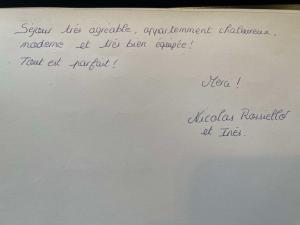 Séjour très agréable, appartement chaleureux,
moderne et très bien équipée!
Tout est parfait!
Merci!
Nicolas Rossiello
et Inès.